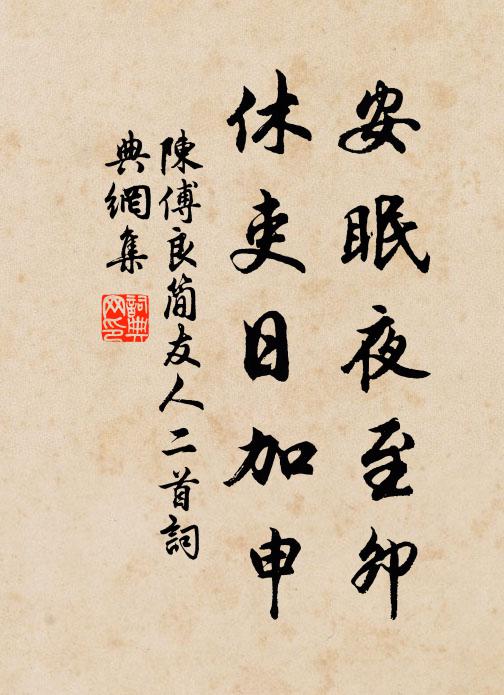 安眠夜至卯
休吏日加申
陳傅良簡友人二首詞
典網集
詞典
网印